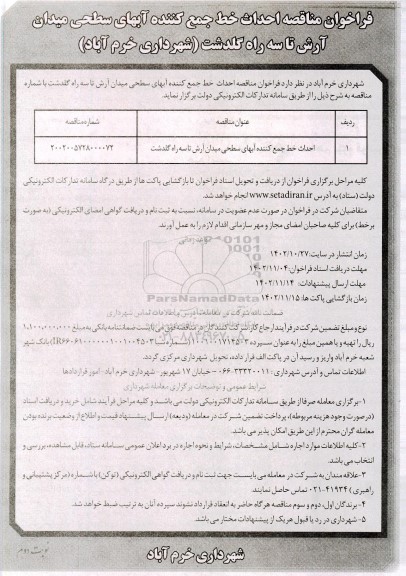 فراخوان مناقصه احداث خط جمع کننده آبهای سطحی میدان
آرش تا سه راه گلدشت (شهرداری خرم آباد)
شهرداری خرم آباد در نظر دارد فراخوان مناقصه احداث خط جمع کننده آبهای سطحی میدان آرش تا سه راه گلدشت با شماره
مناقصه به شرح ذیل را از طریق سامانه تدارکات الکترونیکی دولت برگزار نماید.
ردیف عنوان مناقصه شماره مناقصه
۱ احداث خط جمع کننده آبهای سطحی میدان آرش تا سه راه گلدشت ۲۰۰۲۰۰۵۷۲۸۰۰۰۰۷۲
کلیه مراحل برگزاری فراخوان از دریافت و تحویل اسناد فراخوان تا بازگشایی پاکت ها از طریق درگاه سامانه تدارکات الکترونیکی
دولت (ستاد) به آدرس www.setadiran.ir انجام خواهد شد.
متقاضیان شرکت در فراخوان در صورت عدم عضویت در سامانه، نسبت به ثبت نام و دریافت گواهی امضای الکترونیکی (به صورت
برخط) برای کلیه صاحبان امضای مجاز و مهر سازمانی اقدام لازم را به عمل آورند.
زمان انتشار در سایت: ۱۴۰۲/۱۰/۲۷
مهلت دریافت اسناد فراخوان: ۱۴۰۲/۱۱/۰۴
مهلت ارسال پیشنهادات: ۱۴۰۲/۱۱/۱۴
زمان بازگشایی پاکت ها: ۱۴۰۲/۱۱/۱۵
ParsNamadData
نوع و مبلغ تضمین شرکت در فرآیند ارجاع کار: شرکت کنندگان در مناقصه فوق می بایست ضمانتنامه بانکی به مبلغ
ریال را تهیه و یا همین مبلغ را به عنوان سپرده بانک شهر
شعبه خرم آباد واریز و رسید آن در پاکت الف قرار داده، تحویل شهرداری مرکزی گردد.
اطلاعات تماس و آدرس شهرداری: ۳۳۳۲۰۰۱۱-۰۶۶ - خیابان ۱۷ شهریور- شهرداری خرم آباد- امور قراردادها
شرایط عمومی و توضیحات برگزاری معامله شهرداری
۱-برگزاری معامله صرفا از طریق سامانه تدارکات الکترونیکی دولت می باشد و کلیه مراحل فرآیند شامل خرید و دریافت اسناد
(در صورت وجود هزینه مربوطه)، پرداخت تضمین شرکت در معامله (ودیعه) ارسال پیشنهاد قیمت و اطلاع از وضعیت برنده بودن
معامله گران محترم از این طریق امکان پذیر می باشد.
۲-کلیه اطلاعات موارد اجاره شامل مشخصات، شرایط و نحوه اجاره در برد اعلان عمومی سامانه ستاد، قابل مشاهده، بررسی و
انتخاب می باشد.
۳-علاقه مندان به شرکت در معامله می بایست جهت ثبت نام و دریافت گواهی الکترونیکی (توکن) با شماره (مرکز پشتیبانی و
راهبری) ۴۱۹۳۴-۰۲۱ تماس حاصل نمایند.
۴- برندگان اول، دوم و سوم مناقصه هرگاه حاضر به انعقاد قرارداد نشوند سپرده آنان به ترتیب ضبط خواهد شد.
۵- شهرداری در رد یا قبول هریک از پیشنهادات مختار می باشد.
شهرداری خرم آباد
نوبت دوم